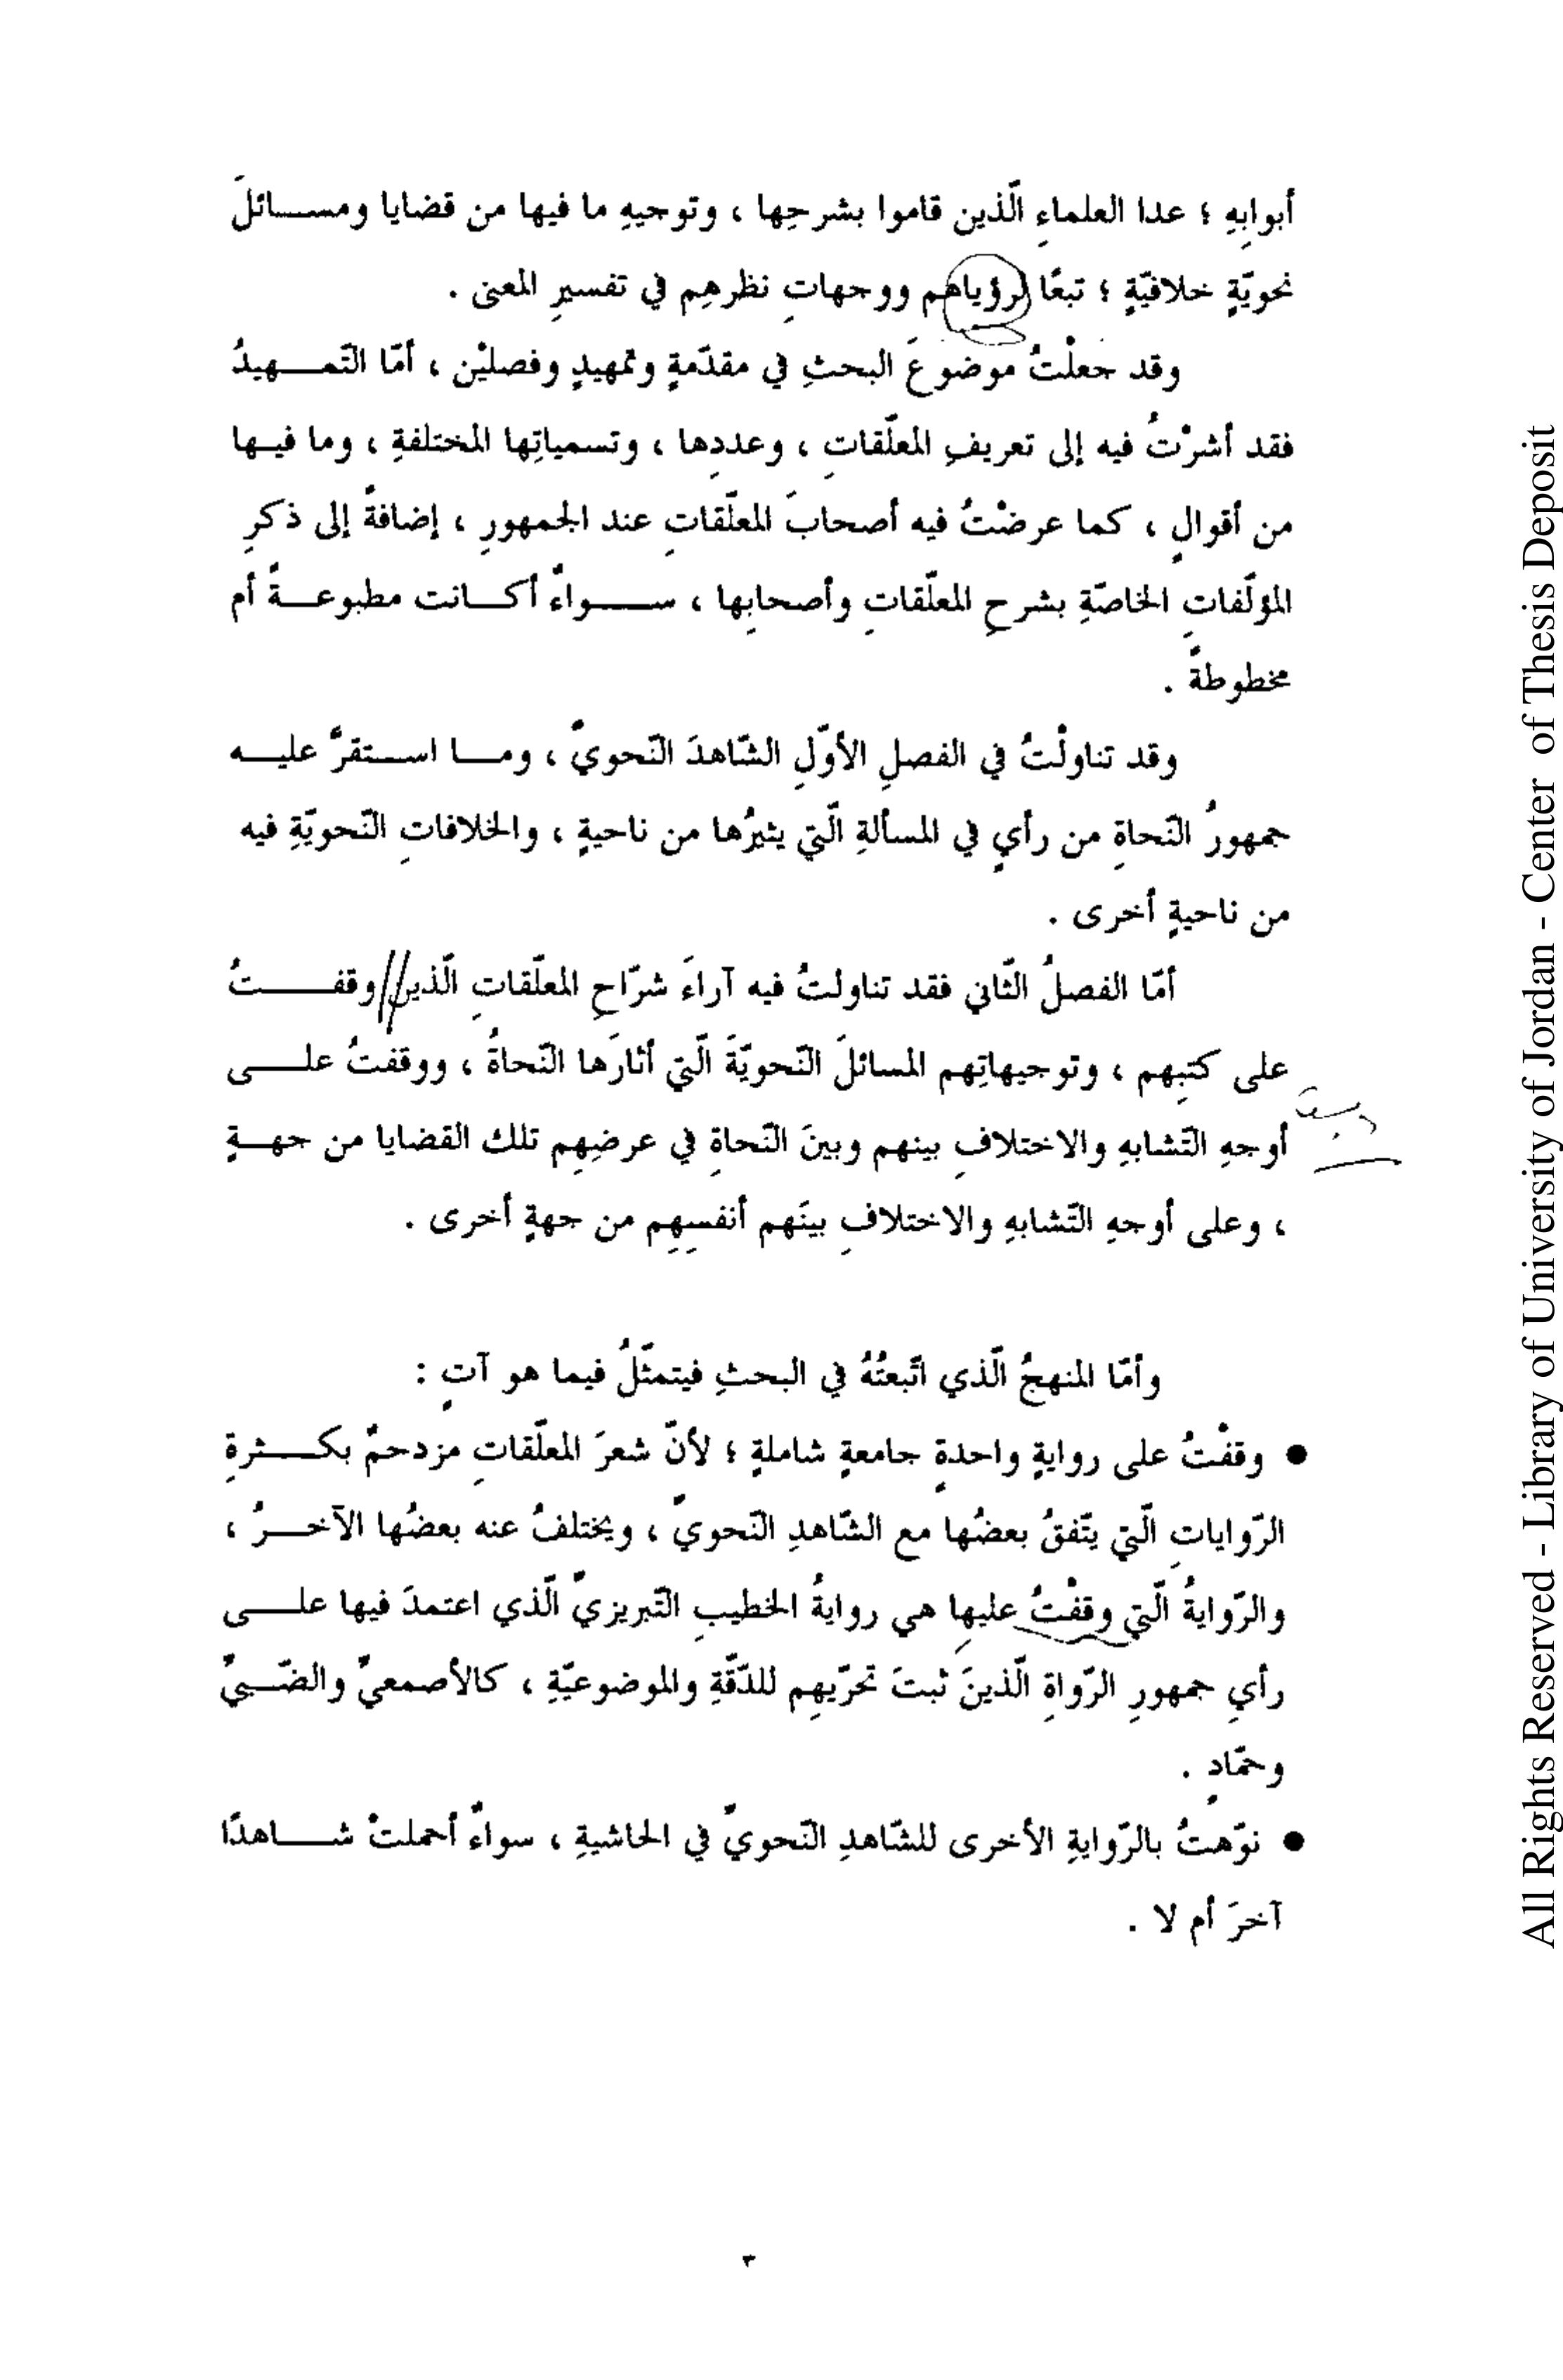 أبوابِهِ ؛ عدا العلماءِ الّذين قاموا بشرحِها ، وتوجيهِ ما فيها من قضايا ومســـائلَ
نحويّةٍ خلافيّةٍ ؛ تبعًا لرؤياهم ووجهاتِ نظرهِم في تفسيرِ المعنى .
وقد جعلْتُ موضوعَ البحثِ في مقدّمةٍ وتمهيدٍ وفصليْن ، أمّا التّمـــهيدُ
فقد أشرْتُ فيه إلى تعريفِ المعلّقاتِ ، وعددِها ، وتسمياتِها المختلفةِ ، وما فيـها
من أقوالٍ ، كما عرضْتُ فيه أصحابَ المعلّقاتِ عند الجمهورِ ، إضافةً إلى ذكرِ
المؤلّفاتِ الخاصّةِ بشرحِ المعلّقاتِ وأصحابِها ، ســـــواءً أكـــانت مطبوعـــةً أم
مخطوطةً .
وقد تناولْتُ في الفصلِ الأوّلِ الشّاهدَ النّحويَّ ، ومـــا اســـتقرَّ عليـــه
جمهورُ النّحاةِ من رأيٍ في المسألةِ الّتي يثيرُها من ناحيةٍ ، والخلافاتِ النّحويّةِ فيه
من ناحيةٍ أخرى .
أمّا الفصلُ الثّاني فقد تناولتُ فيه آراءَ شرّاحِ المعلّقاتِ الّذين وقفـــــتُ
على كتبِهم ، وتوجيهاتِهم المسائلَ النّحويّةَ الّتي أثارَها النّحاةُ ، ووقفتُ علــــى
أوجهِ التّشابهِ والاختلافِ بينهم وبينَ النّحاةِ في عرضِهِم تلك القضايا من جهـــةٍ
، وعلى أوجهِ التّشابهِ والاختلافِ بينَهم أنفسِهِم من جهةٍ أخرى .
وأمّا المنهجُ الّذي اتّبعتُهُ في البحثِ فيتمثّلُ فيما هو آتٍ :
● وقفْتُ على روايةٍ واحدةٍ جامعةٍ شاملةٍ ؛ لأنّ شعرَ المعلّقاتِ مزدحمٌ بكــــثرةِ
الرّواياتِ الّتي يتّفقُ بعضُها مع الشّاهدِ النّحويِّ ، ويختلفُ عنه بعضُها الآخـــرُ ،
والرّوايةُ الّتي وقفْتُ عليها هي روايةُ الخطيبِ التّبريزيِّ الّذي اعتمدَ فيها علــــى
رأيِ جمهورِ الرّواةِ الّذينَ ثبتَ تحرّيهِم للدّقّةِ والموضوعيّةِ ، كالأصمعيِّ والضّـــبيِّ
وحمّادٍ .
● نوّهتُ بالرّوايةِ الأخرى للشّاهدِ النّحويِّ في الحاشيةِ ، سواءً أحملتْ شـــــاهدًا
آخرَ أم لا .
٣
All Rights Reserved - Library of University of Jordan - Center of Thesis Deposit